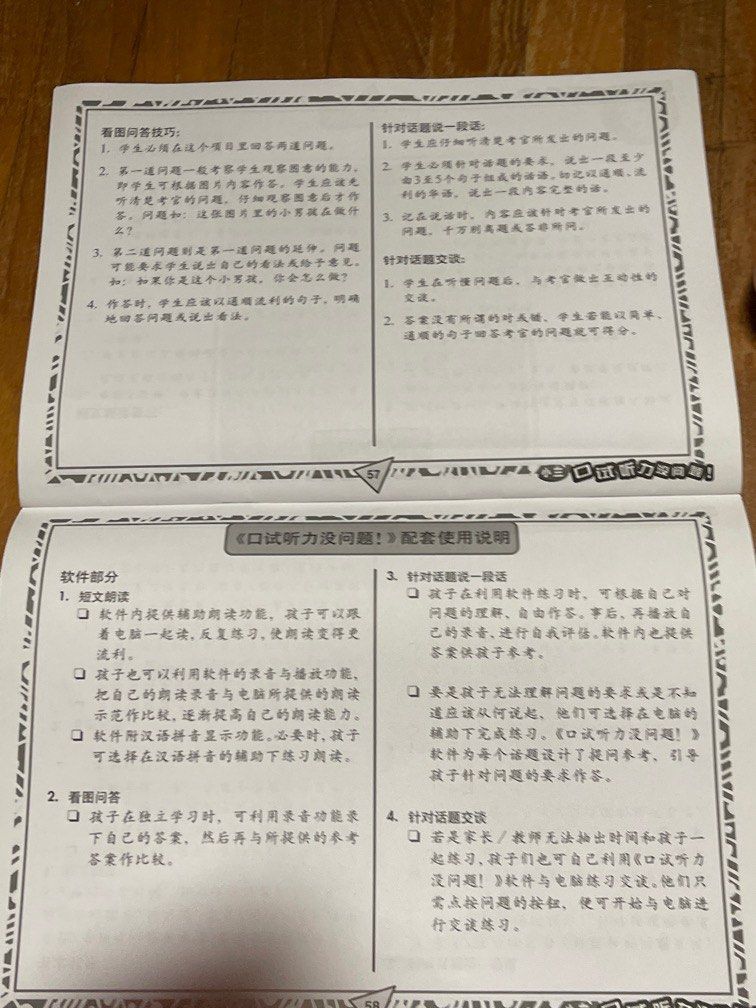 看图问答技巧：
1. 学生必须在这个项目里回答两道问题。
2. 第一道问题一般考察学生观察图意的能力，
即学生可根据图片内容作答。学生应该先
听清楚考官的问题，仔细观察图意后才作
答。问题如：这张图片里的小男孩在做什
么？
3. 第二道问题则是第一道问题的延伸。问题
可能要求学生说出自己的看法或给予意见。
如：如果你是这个小男孩，你会怎么做？
4. 作答时，学生应该以通顺流利的句子，明确
地回答问题或说出看法。
针对话题说一段话：
1. 学生应仔细听清楚考官所发出的问题。
2. 学生必须针对话题的要求，说出一段至少
由3至5个句子组成的话语。切记以通顺、流
利的华语，说出一段内容完整的话。
3. 记在说话时，内容应该针对考官所发出的
问题，千万别离题或答非所问。
针对话题交谈：
1. 学生在听懂问题后，与考官做出互动性的
交谈。
2. 答案没有所谓的对或错，学生若能以简单、
通顺的句子回答考官的问题就可得分。
57
小三 口试听力没问题！
《口试听力没问题！》配套使用说明
软件部分
1. 短文朗读
软件内提供辅助朗读功能，孩子可以跟
着电脑一起读，反复练习，使朗读变得更
流利。
孩子也可以利用软件的录音与播放功能，
把自己的朗读录音与电脑所提供的朗读
示范作比较，逐渐提高自己的朗读能力。
软件附汉语拼音显示功能。必要时，孩子
可选择在汉语拼音的辅助下练习朗读。
2. 看图问答
孩子在独立学习时，可利用录音功能录
下自己的答案，然后再与所提供的参考
答案作比较。
3. 针对话题说一段话
孩子在利用软件练习时，可根据自己对
问题的理解、自由作答。事后，再播放自
己的录音、进行自我评估。软件内也提供
答案供孩子参考。
要是孩子无法理解问题的要求或是不知
道应该从何说起，他们可选择在电脑的
辅助下完成练习。《口试听力没问题！》
软件为每个话题设计了提问参考，引导
孩子针对问题的要求作答。
4. 针对话题交谈
若是家长／教师无法抽出时间和孩子一
起练习，孩子们也可自己利用《口试听力
没问题！》软件与电脑练习交谈。他们只
需点按问题的按钮，便可开始与电脑进
行交谈练习。
58